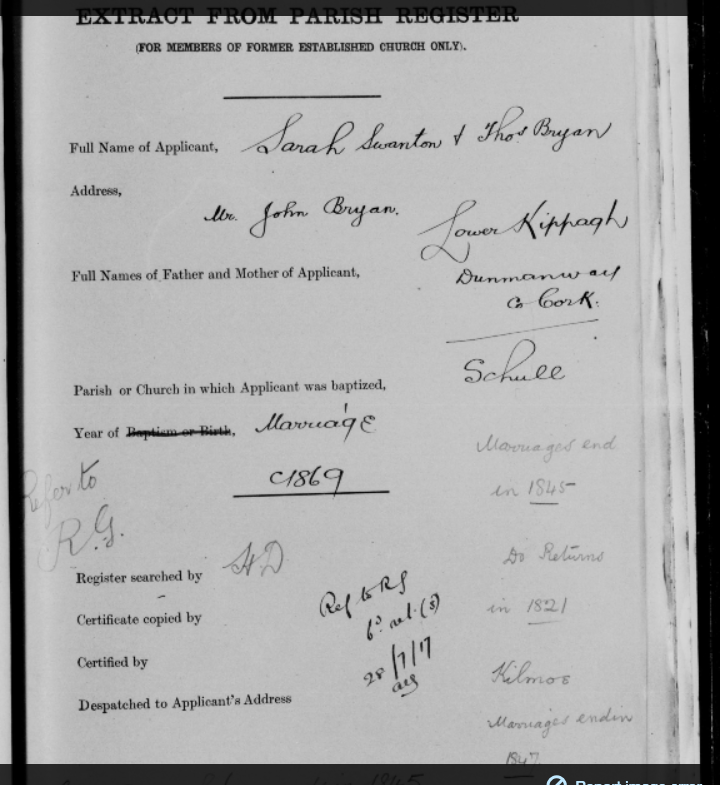 EXTRACT FROM PARISH REGISTER
(FOR MEMBERS OF FORMER ESTABLISHED CHURCH ONLY).
Full Name of Applicant, Sarah Swanton & Thos Bryan
Address,
Mr. John Bryan.
Lower Kippagh
Full Names of Father and Mother of Applicant,
Dunmanway
Co Cork.
Schull
Parish or Church in which Applicant was baptized,
Year of Baptism or Birth, Marriage
Marriages end
in 1845
c1869
Refer to
R.G.
Do Returns
in 1821
Register searched by HD
Certificate copied by
Ref to RG
6d ret. (s)
Certified by
28/7/17
Kilmoe
Despatched to Applicant's Address
Marriages end in
1847
1845
Report image error